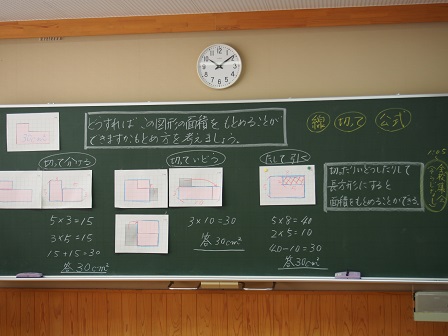 どうすれば、この図形の面積をもとめることが
できますか。もとめ方を考えましょう。
線 切って 公式
切って分ける
5×3=15
3×5=15
15+15=30
答30cm²
切っていどう
3×10=30
答30cm²
たして引く
5×8=40
2×5=10
40-10=30
答30cm²
切ったりいどうしたりして
長方形にすると
面積をもとめることができる。